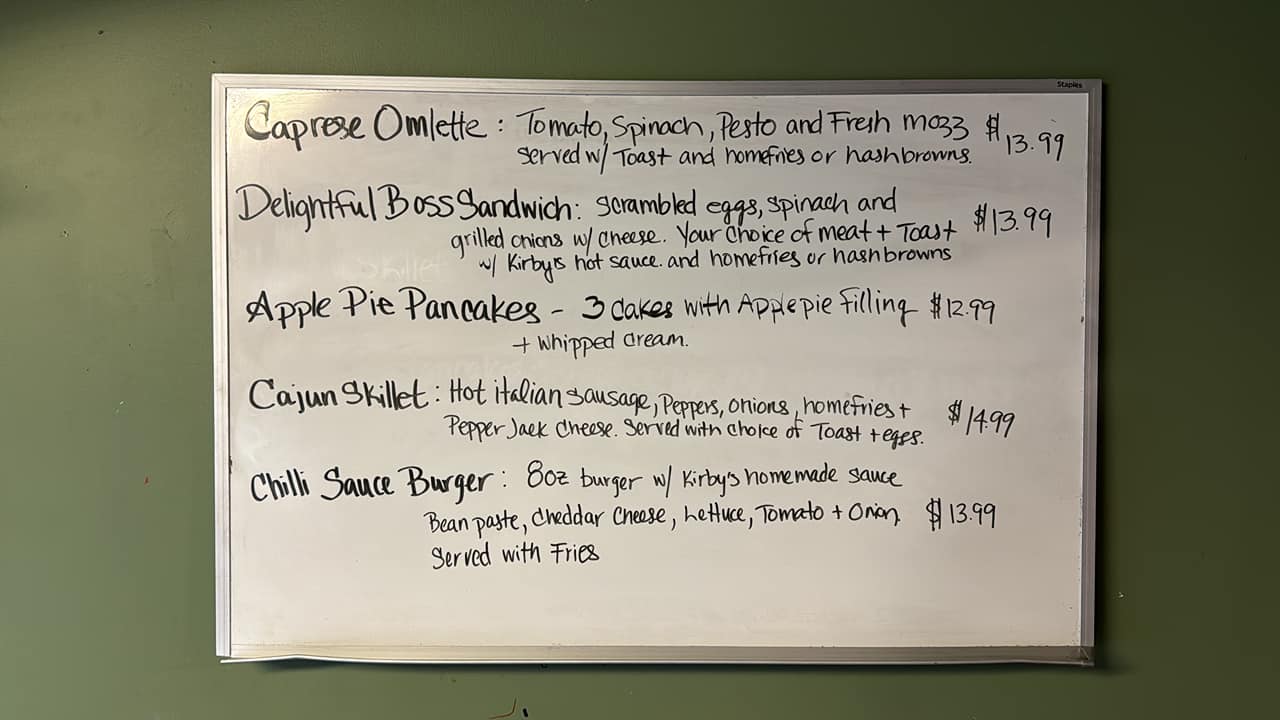 Staples
Caprese Omlette : Tomato, Spinach, Pesto and Fresh mozz $13.99
Served w/ Toast and homefries or hashbrowns.
Delightful Boss Sandwich: scrambled eggs, spinach and
grilled onions w/ cheese. Your choice of meat + Toast $13.99
w/ Kirby's hot sauce. and homefries or hashbrowns
Skillet
Apple Pie Pancakes - 3 cakes with Apple pie filling $12.99
+ whipped cream.
Cajun Skillet : Hot italian sausage, Peppers, onions, homefries +
Pepper Jack Cheese. Served with choice of Toast + eggs. $14.99
Chilli Sauce Burger : 8oz burger w/ Kirby's homemade sauce
Bean paste, Cheddar Cheese, Lettuce, Tomato + Onion $13.99
Served with Fries